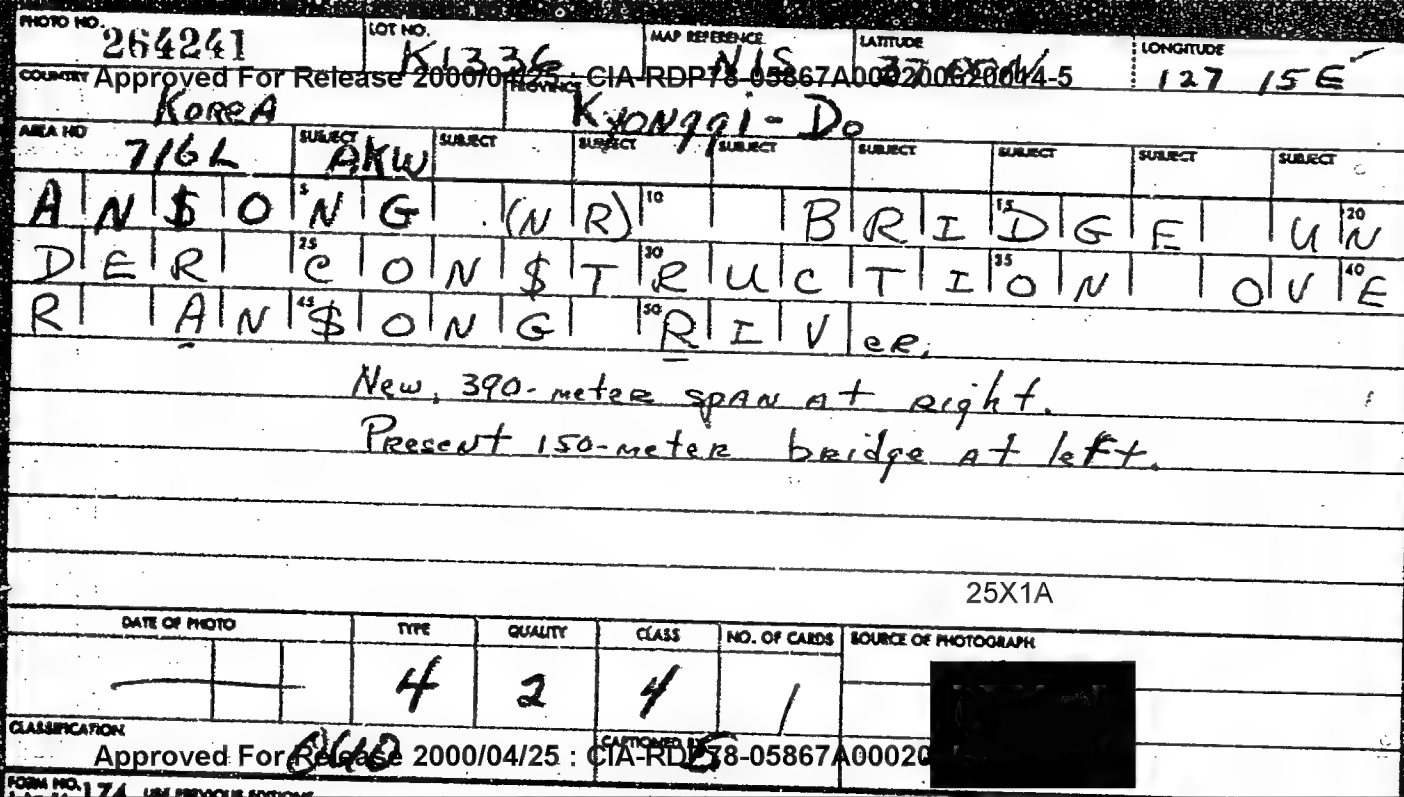 PHOTO NO. 264241 LOT NO. K1336 MAP REFERENCE NIS LATITUDE 37 LONGITUDE 127 15E
Approved For Release 2000/04/25 : CIA-RDP78-05867A000200620014-5
COUNTRY KOREA PROVINCE KyONggi-Do
AREA NO 716L SUBJECT AKW SUBJECT SUBJECT SUBJECT SUBJECT SUBJECT SUBJECT SUBJECT
AN$O 5 NG (NR) 10 BRI 15 DGE U 20 N
DER 25 CON$T 30 RUCTI 35 ON OV 40 E
R AN 45 $ONG 50 RIVeR.
New, 390-meteR spAN At Right.
PResent 150-meteR bRidge At left.
25X1A
DATE OF PHOTO TYPE QUALITY CLASS NO. OF CARDS SOURCE OF PHOTOGRAPH
4 2 4 1
CLASSIFICATION CAPTIONED BY
Approved For Release 2000/04/25 : CIA-RDP78-05867A00020
FORM NO. 174 USE PREVIOUS EDITIONS